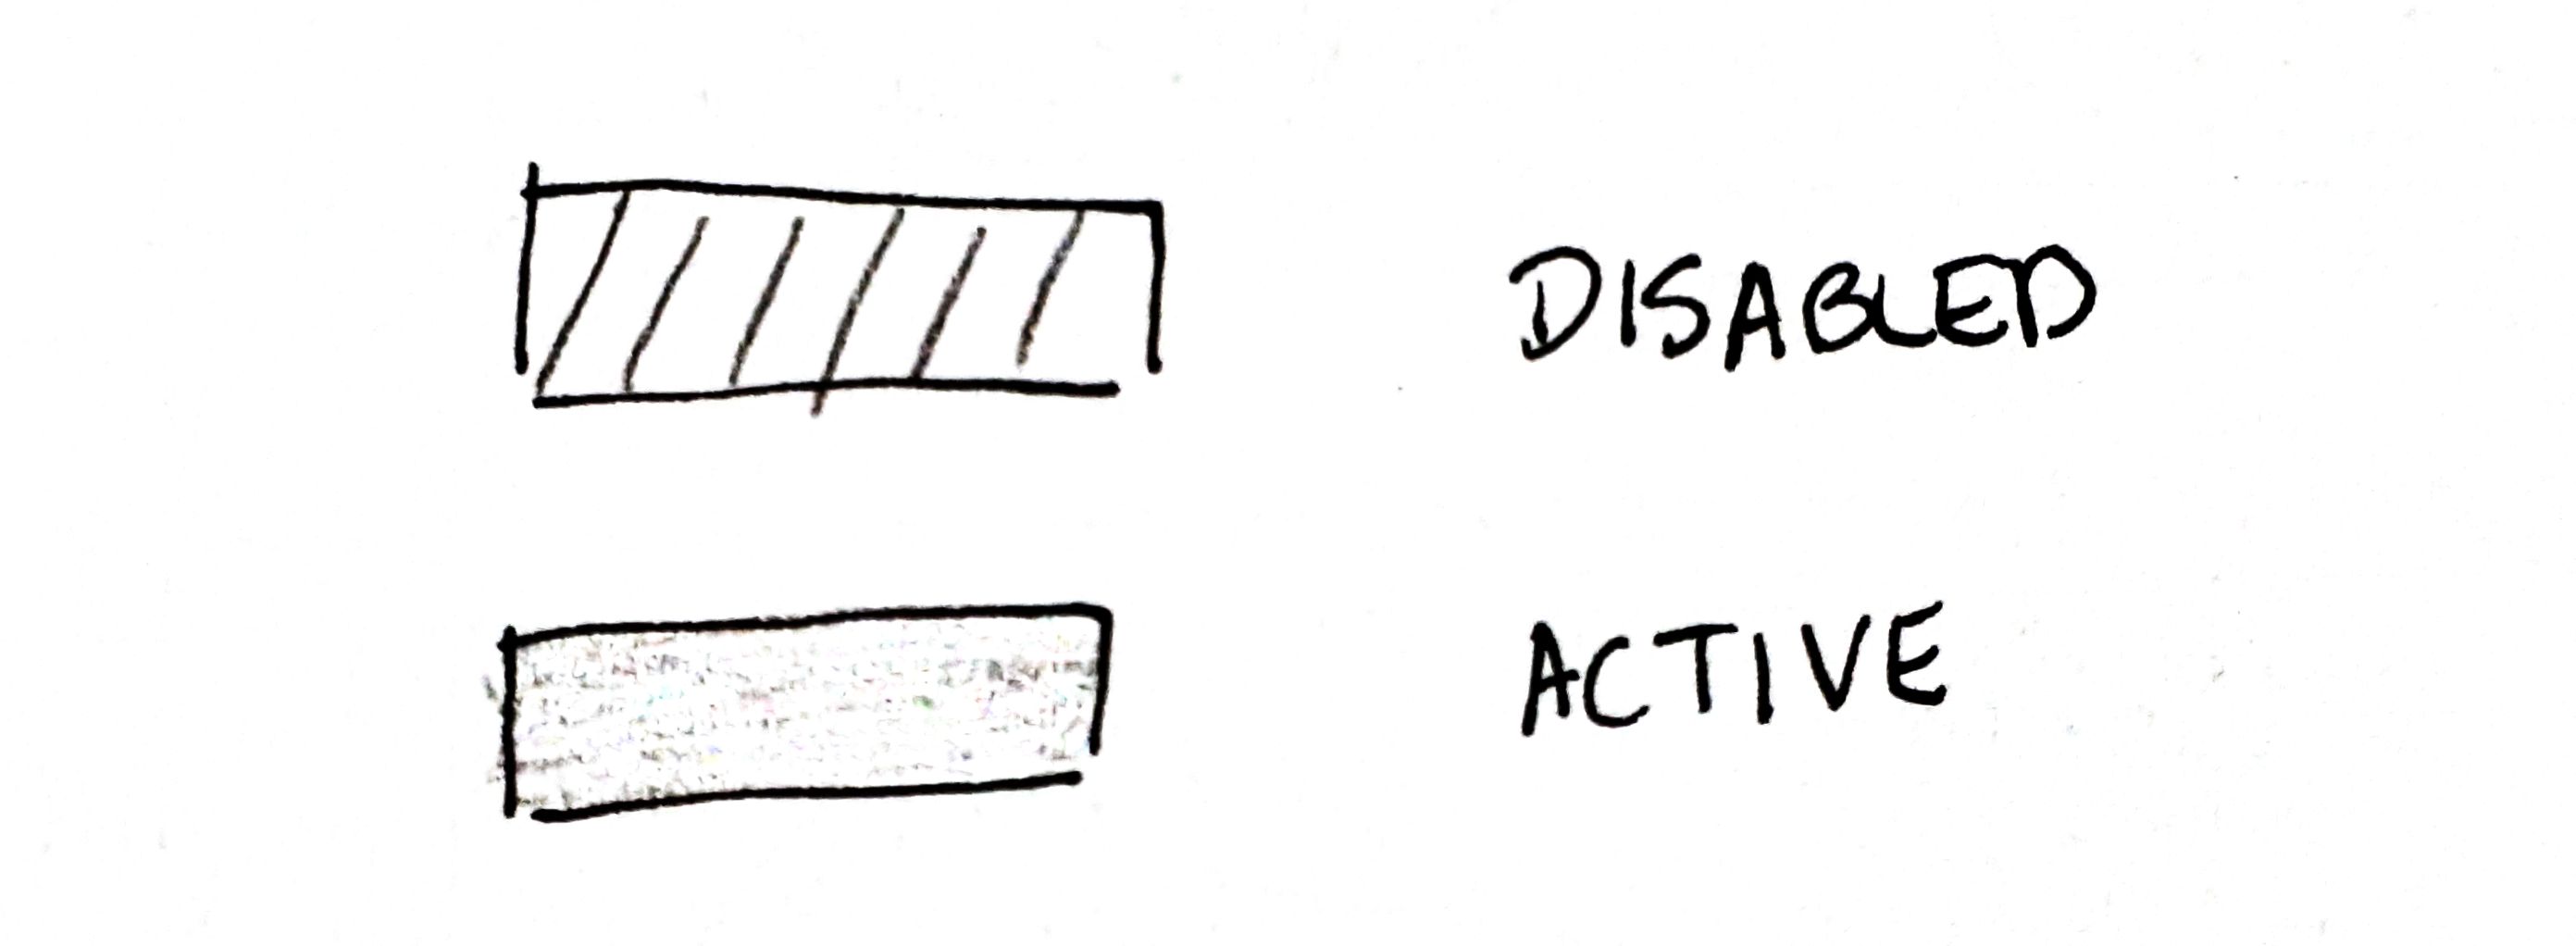 DISABLED
ACTIVE